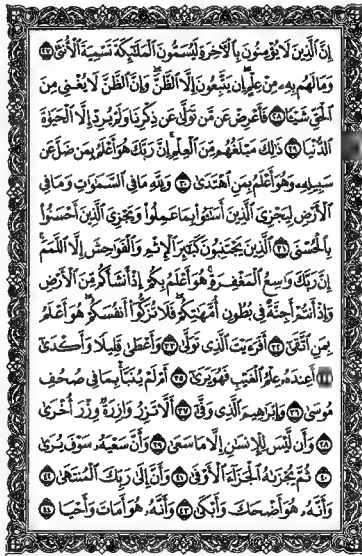 إِنَّ ٱلَّذِينَ لَا يُؤْمِنُونَ بِٱلْأَخِرَةِ لَيُسَمُّونَ ٱلْمَلَٰٓئِكَةَ تَسْمِيَةَ ٱلْأُنثَىٰ ٢٧
وَمَا لَهُم بِهِۦ مِنْ عِلْمٍ إِن يَتَّبِعُونَ إِلَّا ٱلظَّنَّ وَإِنَّ ٱلظَّنَّ لَا يُغْنِى مِنَ
ٱلْحَقِّ شَيْـًٔا ٢٨ فَأَعْرِضْ عَن مَّن تَوَلَّىٰ عَن ذِكْرِنَا وَلَمْ يُرِدْ إِلَّا ٱلْحَيَوٰةَ
ٱلدُّنْيَا ٢٩ ذَٰلِكَ مَبْلَغُهُم مِّنَ ٱلْعِلْمِ إِنَّ رَبَّكَ هُوَ أَعْلَمُ بِمَن ضَلَّ عَن
سَبِيلِهِۦ وَهُوَ أَعْلَمُ بِمَنِ ٱهْتَدَىٰ ٣٠ وَلِلَّهِ مَا فِى ٱلسَّمَٰوَٰتِ وَمَا فِى
ٱلْأَرْضِ لِيَجْزِىَ ٱلَّذِينَ أَسَٰٓـُٔوا۟ بِمَا عَمِلُوا۟ وَيَجْزِىَ ٱلَّذِينَ أَحْسَنُوا۟
بِٱلْحُسْنَى ٣١ ٱلَّذِينَ يَجْتَنِبُونَ كَبَٰٓئِرَ ٱلْإِثْمِ وَٱلْفَوَٰحِشَ إِلَّا ٱللَّمَمَ
إِنَّ رَبَّكَ وَٰسِعُ ٱلْمَغْفِرَةِ هُوَ أَعْلَمُ بِكُمْ إِذْ أَنشَأَكُم مِّنَ ٱلْأَرْضِ
وَإِذْ أَنتُمْ أَجِنَّةٌ فِى بُطُونِ أُمَّهَٰتِكُمْ فَلَا تُزَكُّوٓا۟ أَنفُسَكُمْ هُوَ أَعْلَمُ
بِمَنِ ٱتَّقَىٰٓ ٣٢ أَفَرَءَيْتَ ٱلَّذِى تَوَلَّىٰ ٣٣ وَأَعْطَىٰ قَلِيلًا وَأَكْدَىٰٓ
٣٤ أَعِندَهُۥ عِلْمُ ٱلْغَيْبِ فَهُوَ يَرَىٰٓ ٣٥ أَمْ لَمْ يُنَبَّأْ بِمَا فِى صُحُفِ
مُوسَىٰ ٣٦ وَإِبْرَٰهِيمَ ٱلَّذِى وَفَّىٰٓ ٣٧ أَلَّا تَزِرُ وَازِرَةٌ وِزْرَ أُخْرَىٰ
٣٨ وَأَن لَّيْسَ لِلْإِنسَٰنِ إِلَّا مَا سَعَىٰ ٣٩ وَأَنَّ سَعْيَهُۥ سَوْفَ يُرَىٰ
٤٠ ثُمَّ يُجْزَىٰهُ ٱلْجَزَآءَ ٱلْأَوْفَىٰ ٤١ وَأَنَّ إِلَىٰ رَبِّكَ ٱلْمُنتَهَىٰ ٤٢
وَأَنَّهُۥ هُوَ أَضْحَكَ وَأَبْكَىٰ ٤٣ وَأَنَّهُۥ هُوَ أَمَاتَ وَأَحْيَا ٤٤